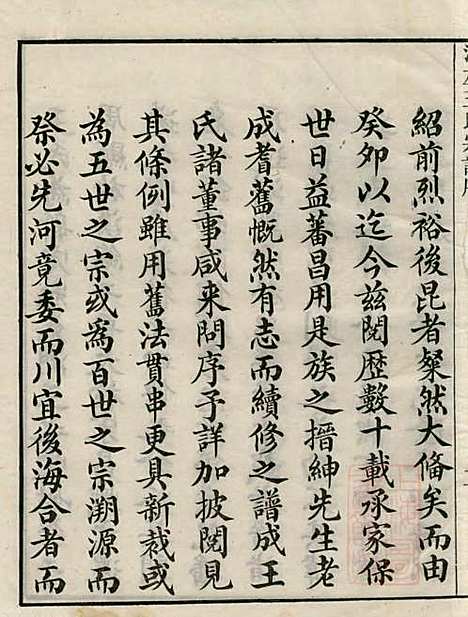 紹前烈裕後昆者粲然大備矣而由
癸卯以迄今茲閱歷數十載承家保
世日益蕃昌用是族之搢紳先生老
成耆舊慨然有志而續修之譜成王
氏諸董事咸来問序予詳加披閱見
其條例雖用舊法貫串更具新裁或
為五世之宗或為百世之宗溯源而
祭必先河竟委而川宜後海合者而